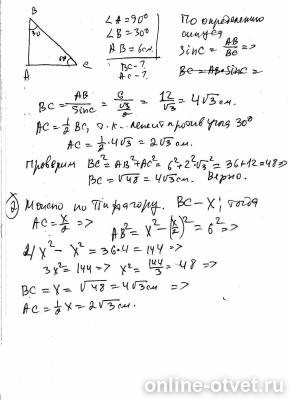 B
30
A
60
C
∠A = 90°
∠B = 30°
AB = 6см.
BC - ?
AC - ?
По определению
синуса
SinC = AB/BC =>
BC = AB·SinC =
BC = AB/SinC = 6/(√3/2) = 12/√3 = 4√3 см.
AC = 1/2 BC, т.к. лежит против угла 30°
AC = 1/2·4√3 = 2√3 см.
Проверим BC² = AB² + AC² = 6² + 2²√3² = 36+12=48 =>
BC = √48 = 4√3 см. Верно.
2 Можно по Пифагору. BC - X; тогда
AC = X/2 => AB² = X² - (X/2)² = 6² =>
4X² - X² = 36·4 = 144 =>
3X² = 144 => X² = 144/3 = 48 =>
BC = X = √48 = 4√3 см =>
AC = 1/2 X = 2√3 см.
online-otvet.ru